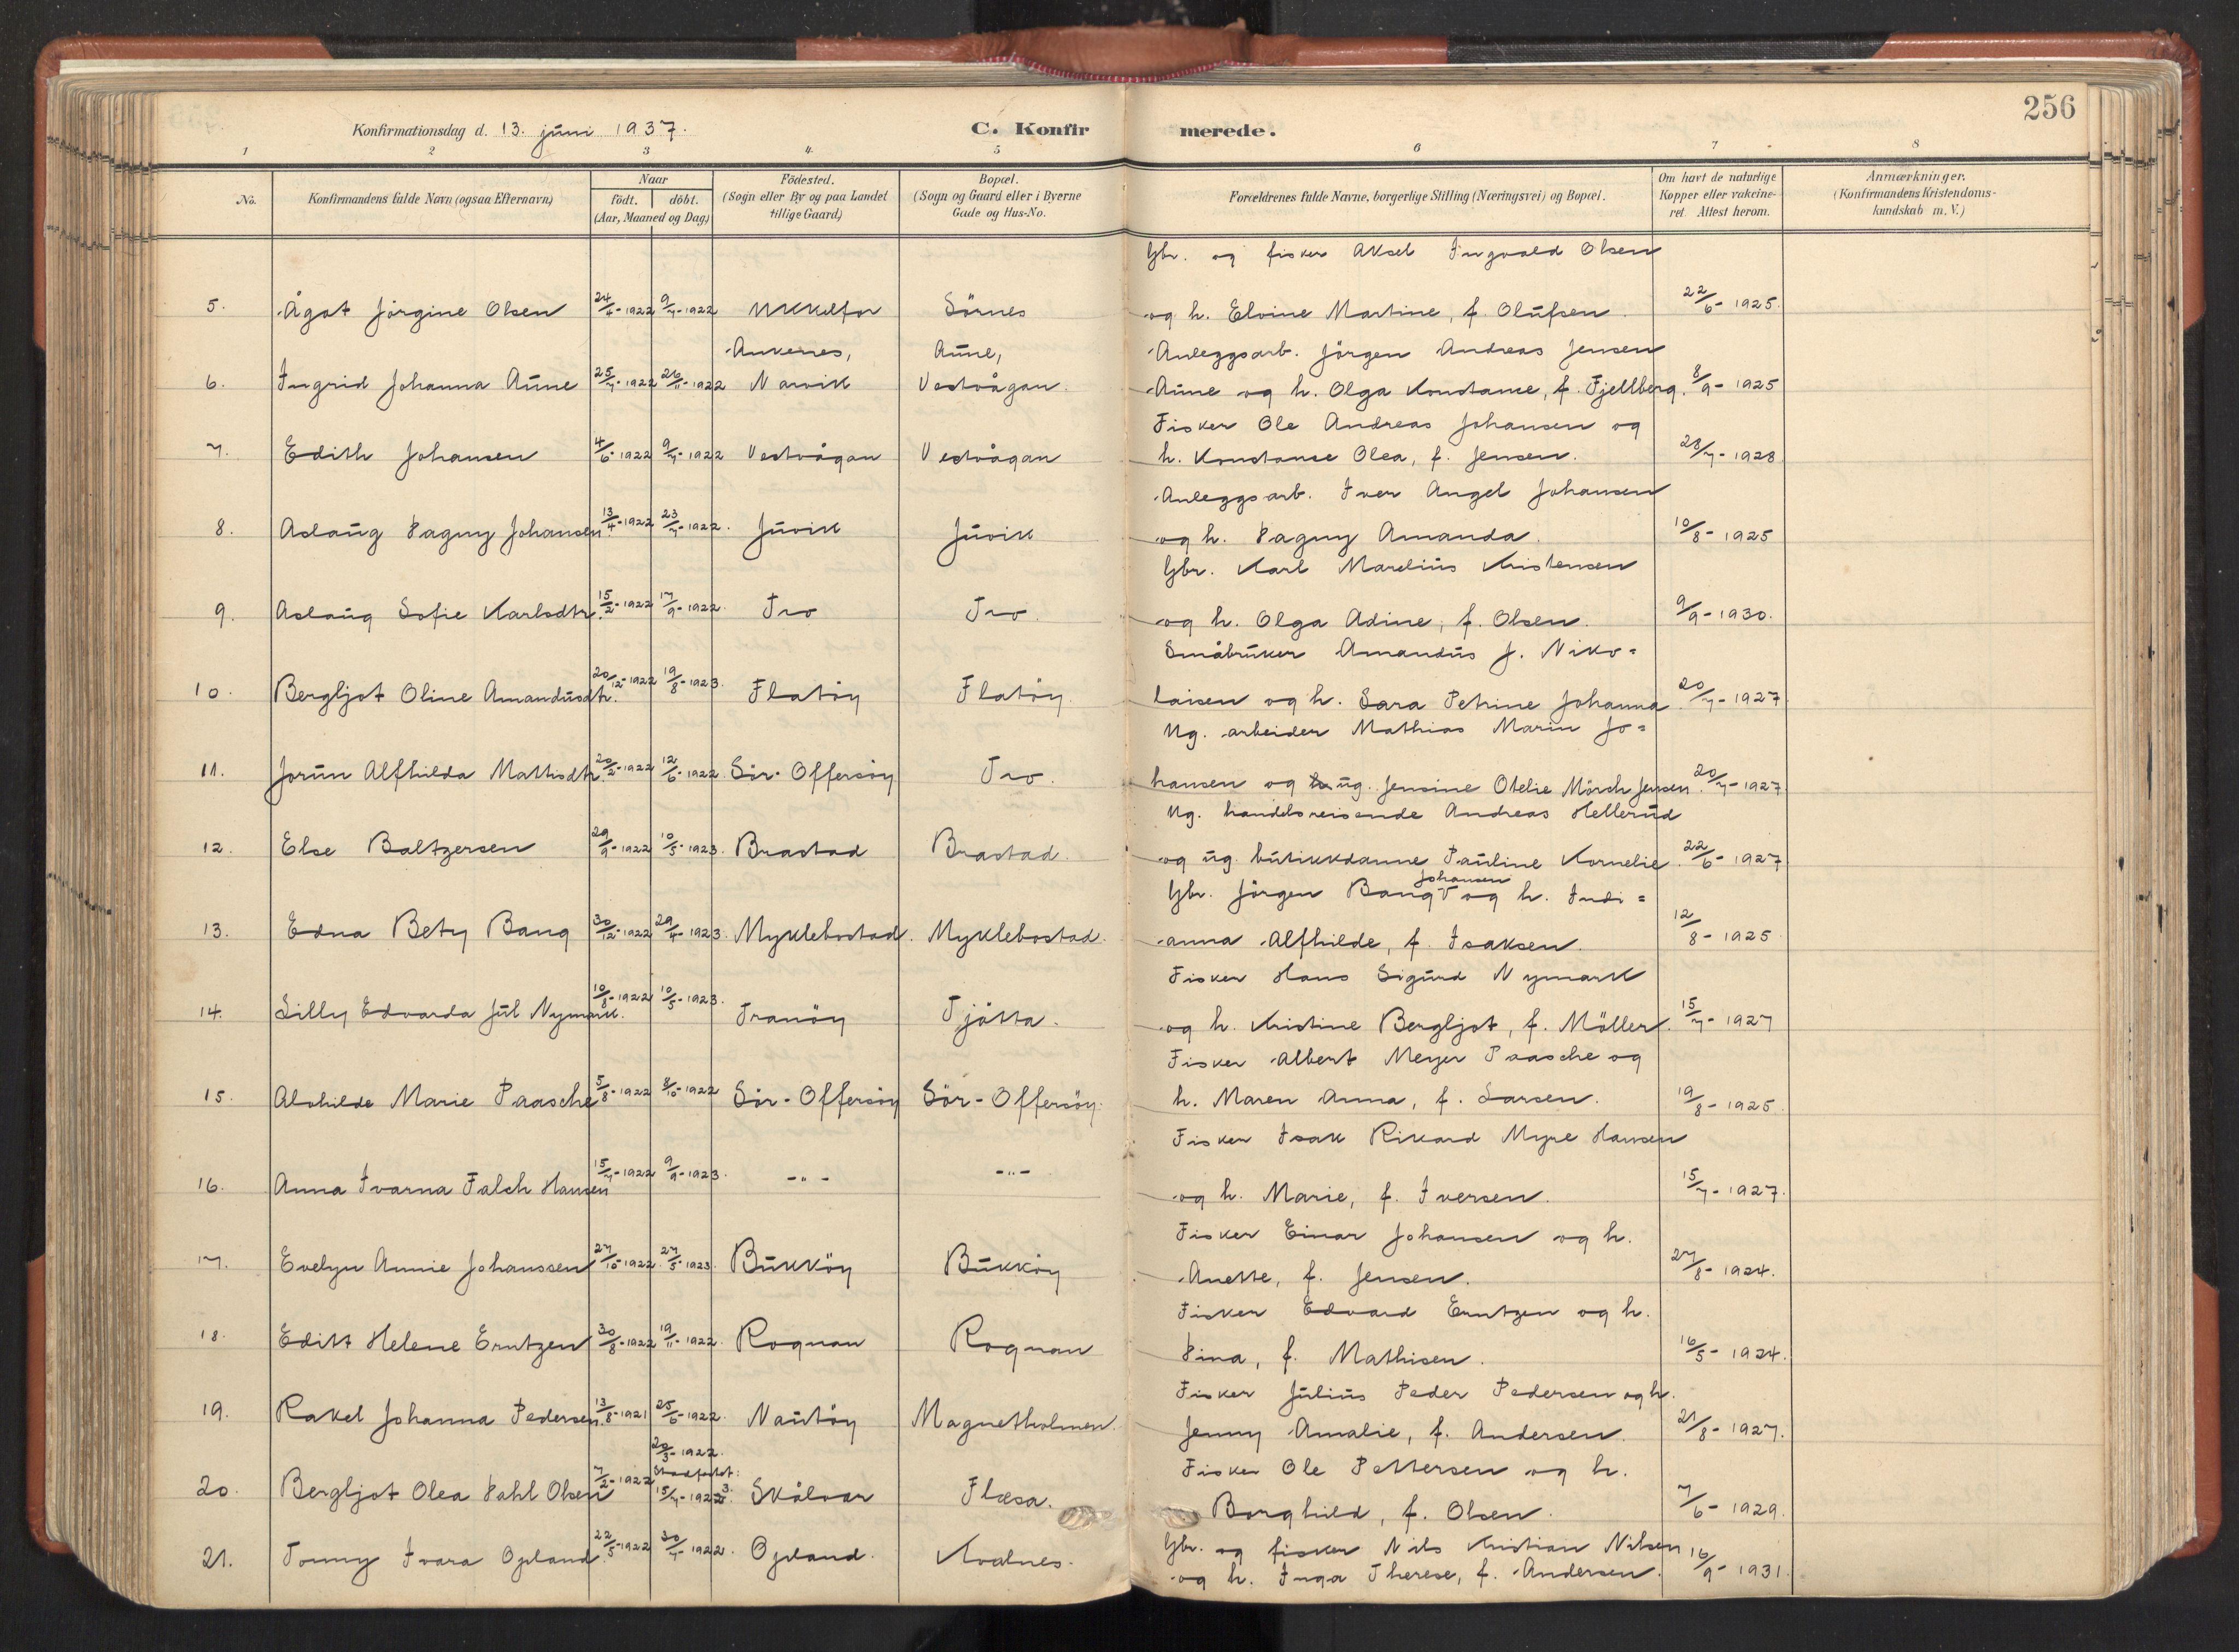 256
Konfirmationsdag d. 13. juni 1937.
C. Konfirmerede.
1 2 3 4 5 6 7 8
No.
Konfirmandens fulde Navn (ogsaa Efternavn)
Naar
født. døbt.
(Aar, Maaned og Dag)
Fødested.
(Sogn eller By og paa Landet
tillige Gaard)
Bopæl.
(Sogn og Gaard eller i Byerne
Gade og Hus-No.
Forældrenes fulde Navne, borgerlige Stilling (Næringsvei) og Bopæl.
Om havt de naturlige
Kopper eller vakcine-
ret. Attest herom.
Anmærkninger.
(Konfirmandens Kristendoms-
kundskab m. V.)
Gbr. og fisker Aksel Ingvald Olsen
5. Ågot Jörgine Olsen 24/4-1922 9/7-1922 Mikkelfor Sörnes og h. Elvine Martine, f. Olufsen. 22/6-1925.
Ankenes, Aune, Anleggsarb. Jörgen Andreas Jensen
6. Ingrid Johanna Aune 25/7-1922 26/11-1922 Narvik Vestvågan. Aune og h. Olga Konstance, f. Fjellberg. 8/9-1925
Fisker Ole Andreas Johansen og
7. Edith Johansen 4/6-1922 9/7-1922 Vestvågan Vestvågan h. Konstanse Olea, f. Jensen. 28/7-1928
Anleggsarb. Iver Angel Johansen
8. Aslaug Dagny Johansen. 13/4-1922 23/7-1922. Juvik Juvik og h. Dagny Amanda. 10/8-1925
Gbr. Karl Marelius Kristensen
9. Aslaug Sofie Karlsdtr. 15/2-1922 17/9-1922. Tro Tro. og h. Olga Adine, f. Olsen. 9/9-1930.
Småbruker Amandus J. Niko=
10. Bergljot Oline Amandusdtr. 20/12-1922 19/8-1923. Flatöy Flatöy. laisen og h. Sara Petrine Johanna. 20/7-1927.
Ug. arbeider Mathias Marin Jo=
11. Jorun Alfhilda Mathisdtr. 20/2-1922 12/6-1922. Sör-Offersöy Tro. hansen og ug. Jensine Otelie Mörch Jensen. 20/7-1927.
Ug. handelsreisende Andreas Hellerud
12. Else Baltzersen 29/9-1922 10/5-1923. Brastad Brastad. og ug. butikkdamme Pauline Kornelie. 22/6-1927
Johansen
Gbr. Jörgen Bang og h. Indi=
13. Edna Bety Bang 30/12-1922 29/4-1923. Myklebostad. Myklebostad. anna Alfhilde, f. Isaksen. 12/8-1925
Fisker Hans Sigurd Nymark
14. Lilly Edvarda Jul Nymark. 10/8-1922 10/5-1923. Tranöy Tjötta. og h. Kristine Bergljot, f. Möller. 15/7-1927
Fisker Albert Meyer Paasche og
15. Alvhilde Marie Paasche 5/8-1922 8/10-1922 Sör-Offersöy Sör-Offersöy. h. Maren Anna, f. Larsen. 19/8-1925.
Fisker Isak Rikard Myre Hansen
16. Anna Ivarna Falch Hansen 15/7-1922 9/9-1923. -"- -"- og h. Marie, f. Iversen. 15/7-1927.
Fisker Einar Johansen og h.
17. Evelyn Annie Johanssen 27/10-1922. 27/5-1923. Bukköy Bukköy Anette, f. Jensen. 27/8-1924.
Fisker Edvard Erntzen og h.
18. Edith Helene Erntzen 30/8-1922 19/11-1922. Rognan Rognan Dina, f. Mathisen. 16/5-1924.
Fisker Julius Peder Pedersen og h.
19. Rakel Johanna Pedersen. 13/8-1921 25/6-1922. Nautöy Magnetholmen. Jenny Amalie, f. Andersen. 21/8-1927.
20/3-1922.
Stadfestet: Fisker Ole Pettersen og h.
20. Bergljot Olea Dahl Olsen 7/2-1922 15/7-1923. Skålvar Flæsa. Borghild, f. Olsen. 7/6-1929.
Gbr. og fisker Nils Kristian Nilsen
21. Tonny Ivara Opland. 22/5-1922 30/7-1922. Opland. Kvalnes. og h. Inga Therese, f. Andersen. 16/9-1931.